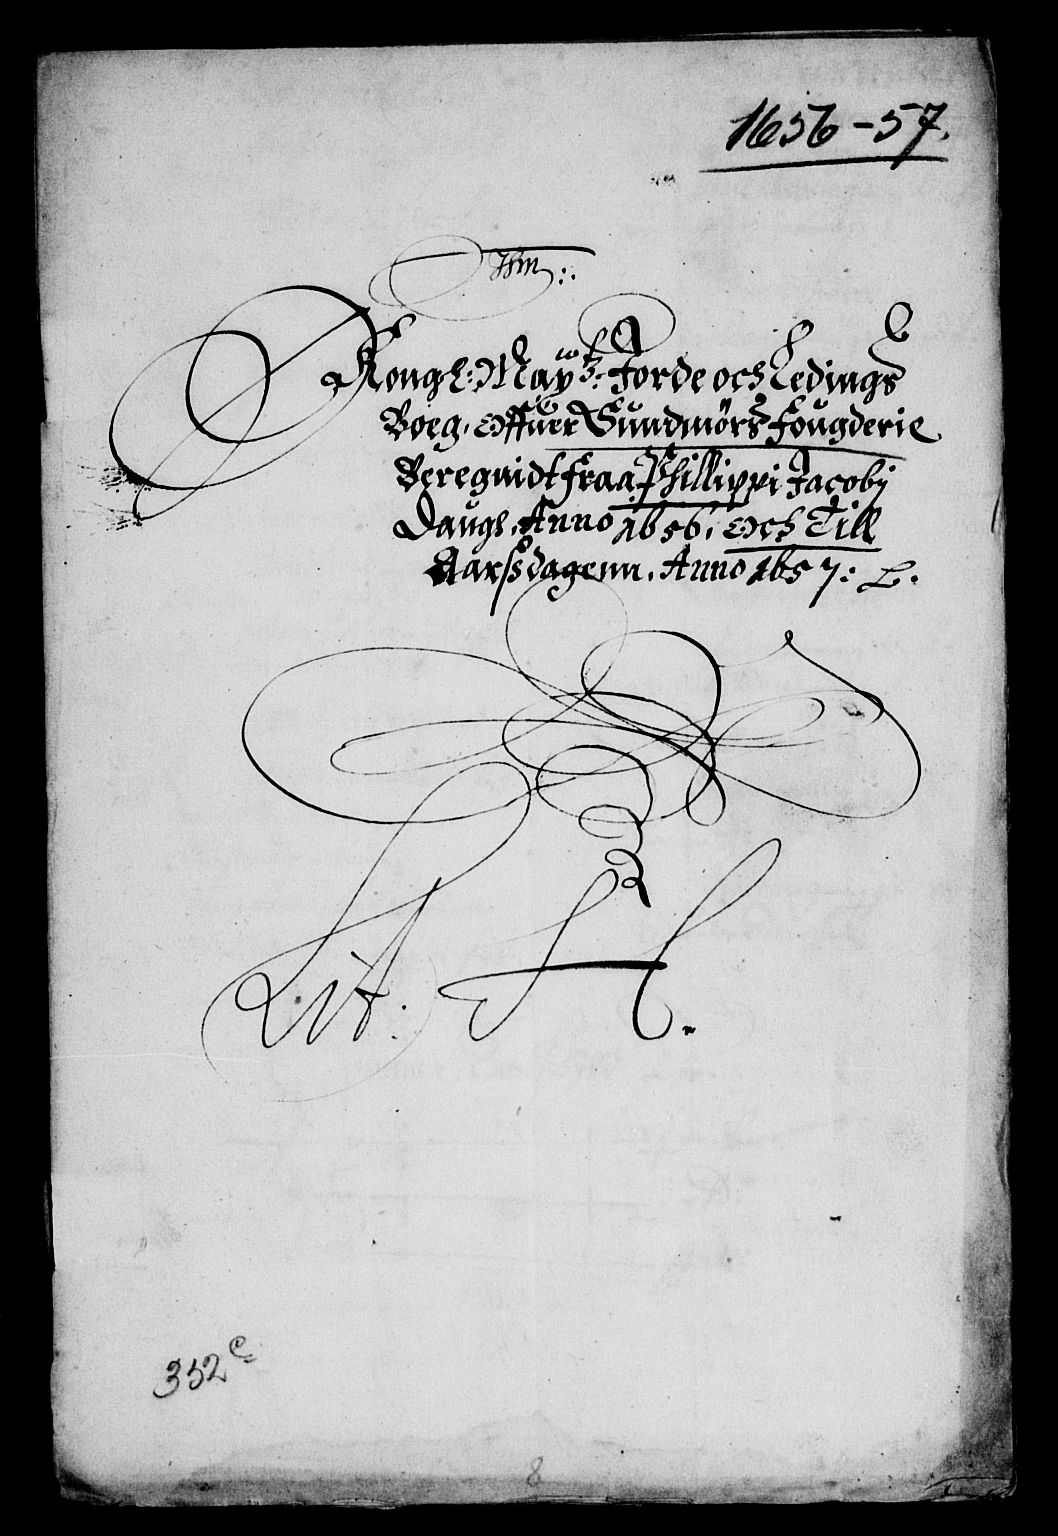 1656-57.
Kongl: Maytz: Jorde och Ledings
Boeg, Offuer Sundmörs Fougderie
Beregnidt fraa Phillippi Jacobj
Daugh, Anno 1656, Och Till
Aarsdagenn, Anno 1657:
Lit. H.
352
8